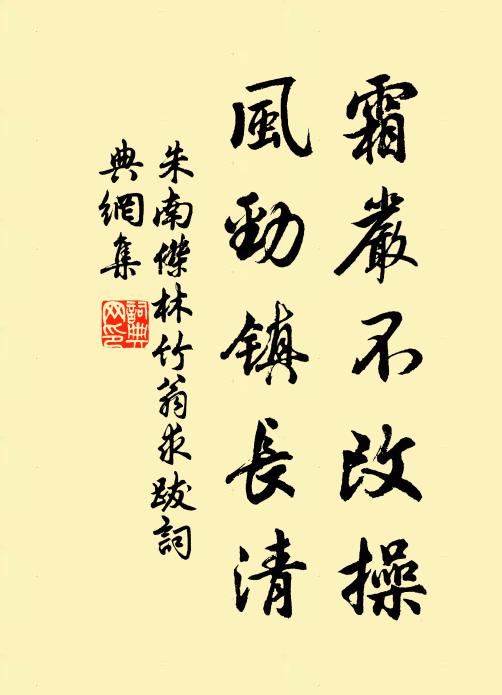 霜嚴不改操
風勁鎮長清
朱南傑林竹翁求跋詞
典網集
詞典
网印